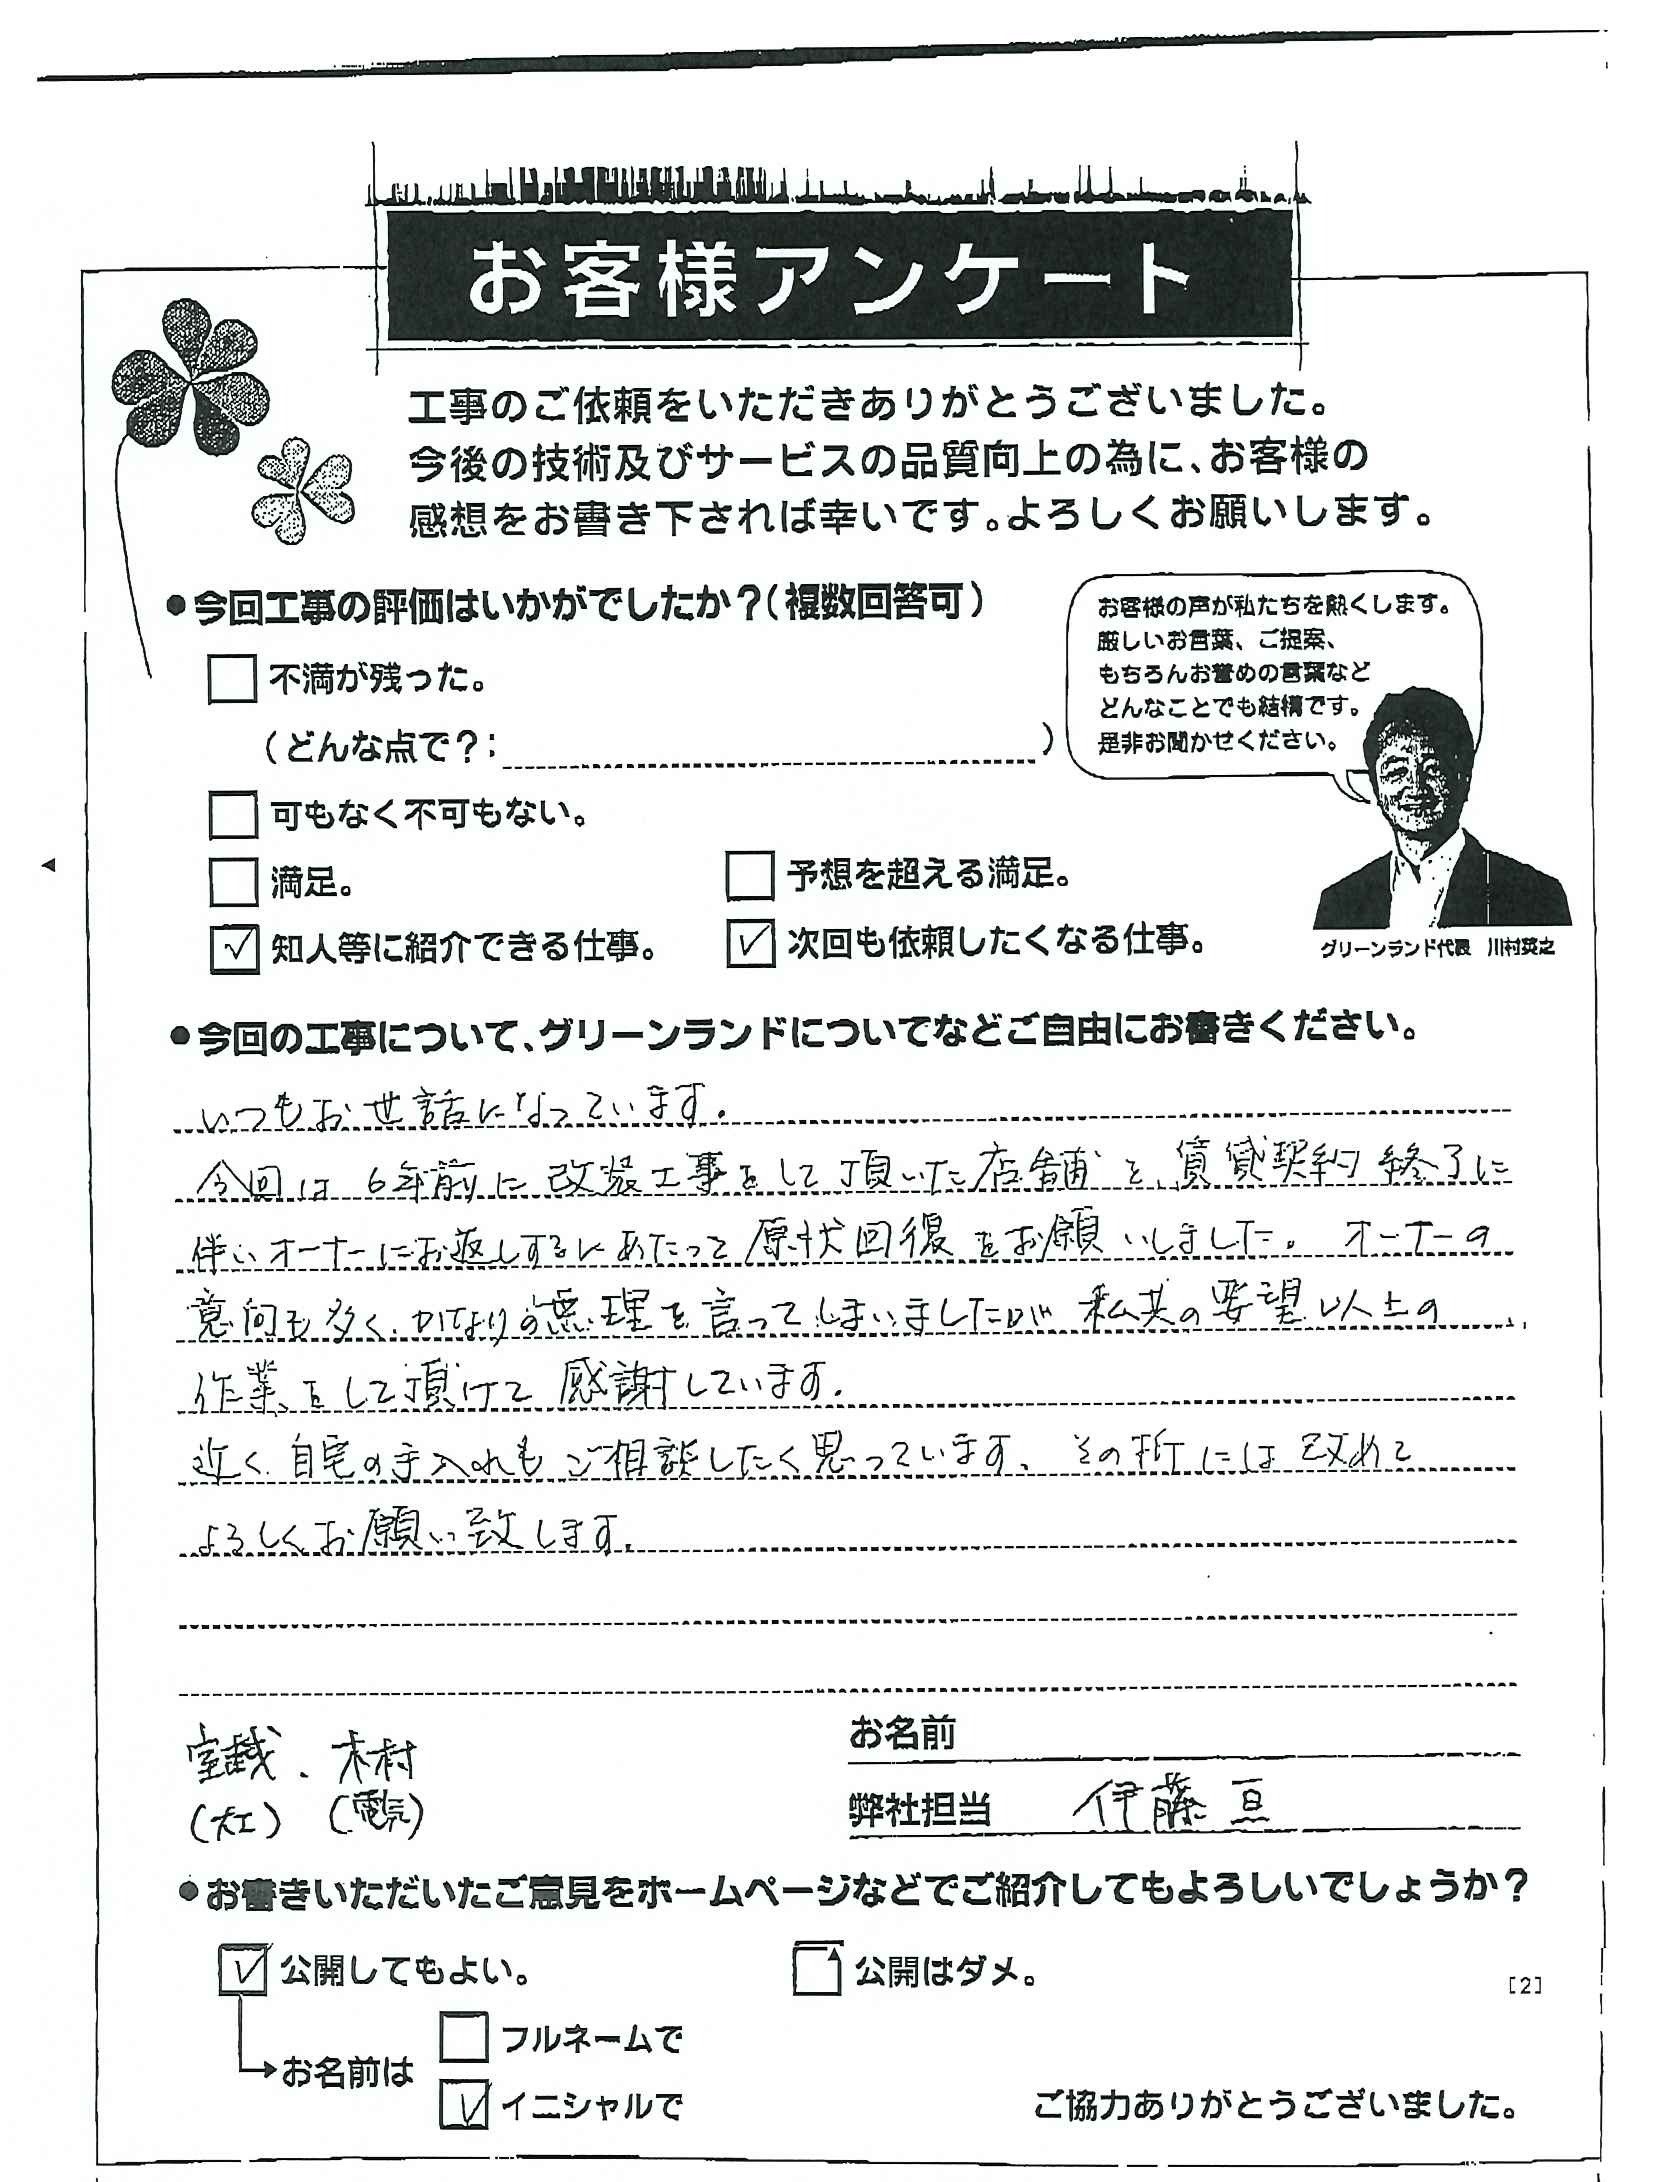 お客様アンケート
工事のご依頼をいただきありがとうございました。
今後の技術及びサービスの品質向上の為に、お客様の
感想をお書き下されば幸いです。よろしくお願いします。
●今回工事の評価はいかがでしたか?(複数回答可)
不満が残った。
(どんな点で?: )
可もなく不可もない。
満足。
予想を超える満足。
✓ 知人等に紹介できる仕事。
✓ 次回も依頼したくなる仕事。
お客様の声が私たちを熱くします。
厳しいお言葉、ご提案、
もちろんお誉めの言葉など
どんなことでも結構です。
是非お聞かせください。
グリーンランド代表 川村英之
●今回の工事について、グリーンランドについてなどご自由にお書きください。
いつもお世話になっています。
今回は6年前に改装工事をして頂いた店舗を、賃貸契約終了に
伴いオーナーにお返しするにあたって原状回復をお願いしました。オーナーの
意向も多く、かなりの無理を言ってしまいましたが私共の要望以上の
作業をして頂けて感謝しています。
近く自宅の手入れもご相談したく思っています、その折には改めて
よろしくお願い致します。
室越、木村
(大工) (電気)
お名前
弊社担当 伊藤亘
●お書きいただいたご意見をホームページなどでご紹介してもよろしいでしょうか?
✓ 公開してもよい。
公開はダメ。
[2]
→お名前は
フルネームで
✓ イニシャルで
ご協力ありがとうございました。